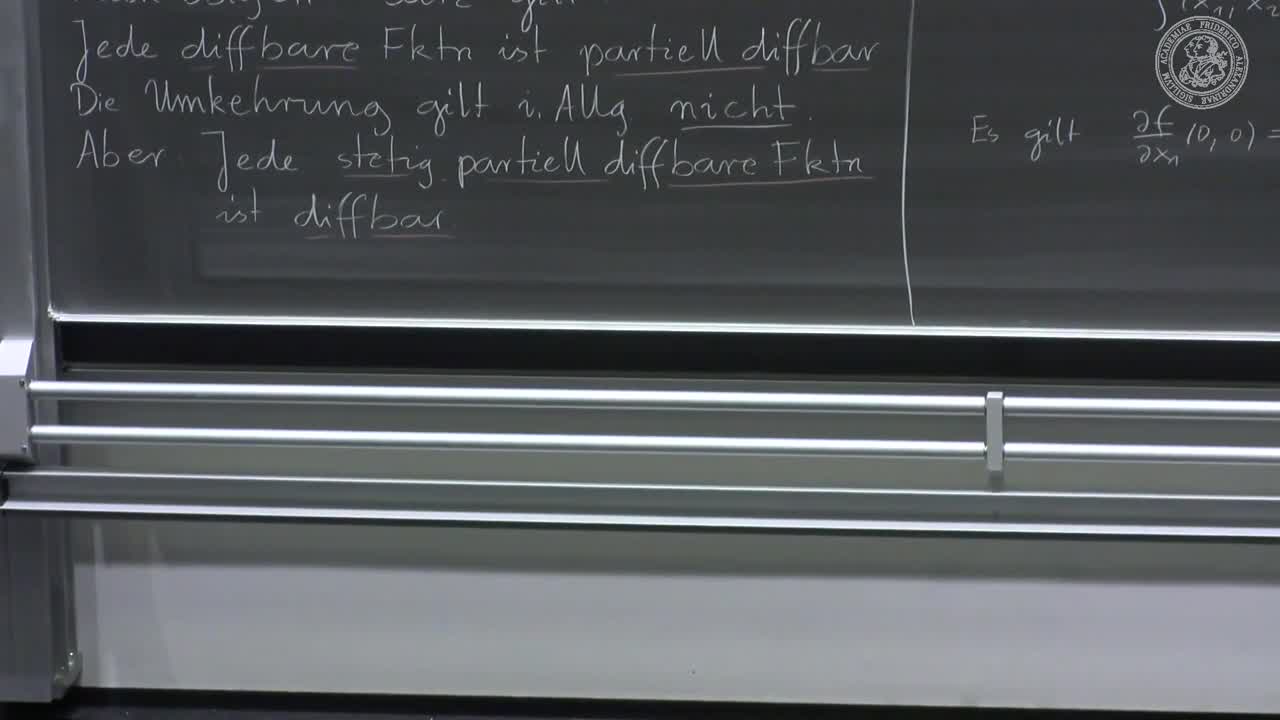 Jede diffbare Fktn ist partiell diffbar
Die Umkehrung gilt i. Allg. nicht.
Aber Jede stetig partiell diffbare Fktn
ist diffbar
f(x₁, x₂
Es gilt ∂f/∂x₁ (0, 0) =
SIGILLUM ACADEMIAE FRIDERICO ALEXANDRINAE